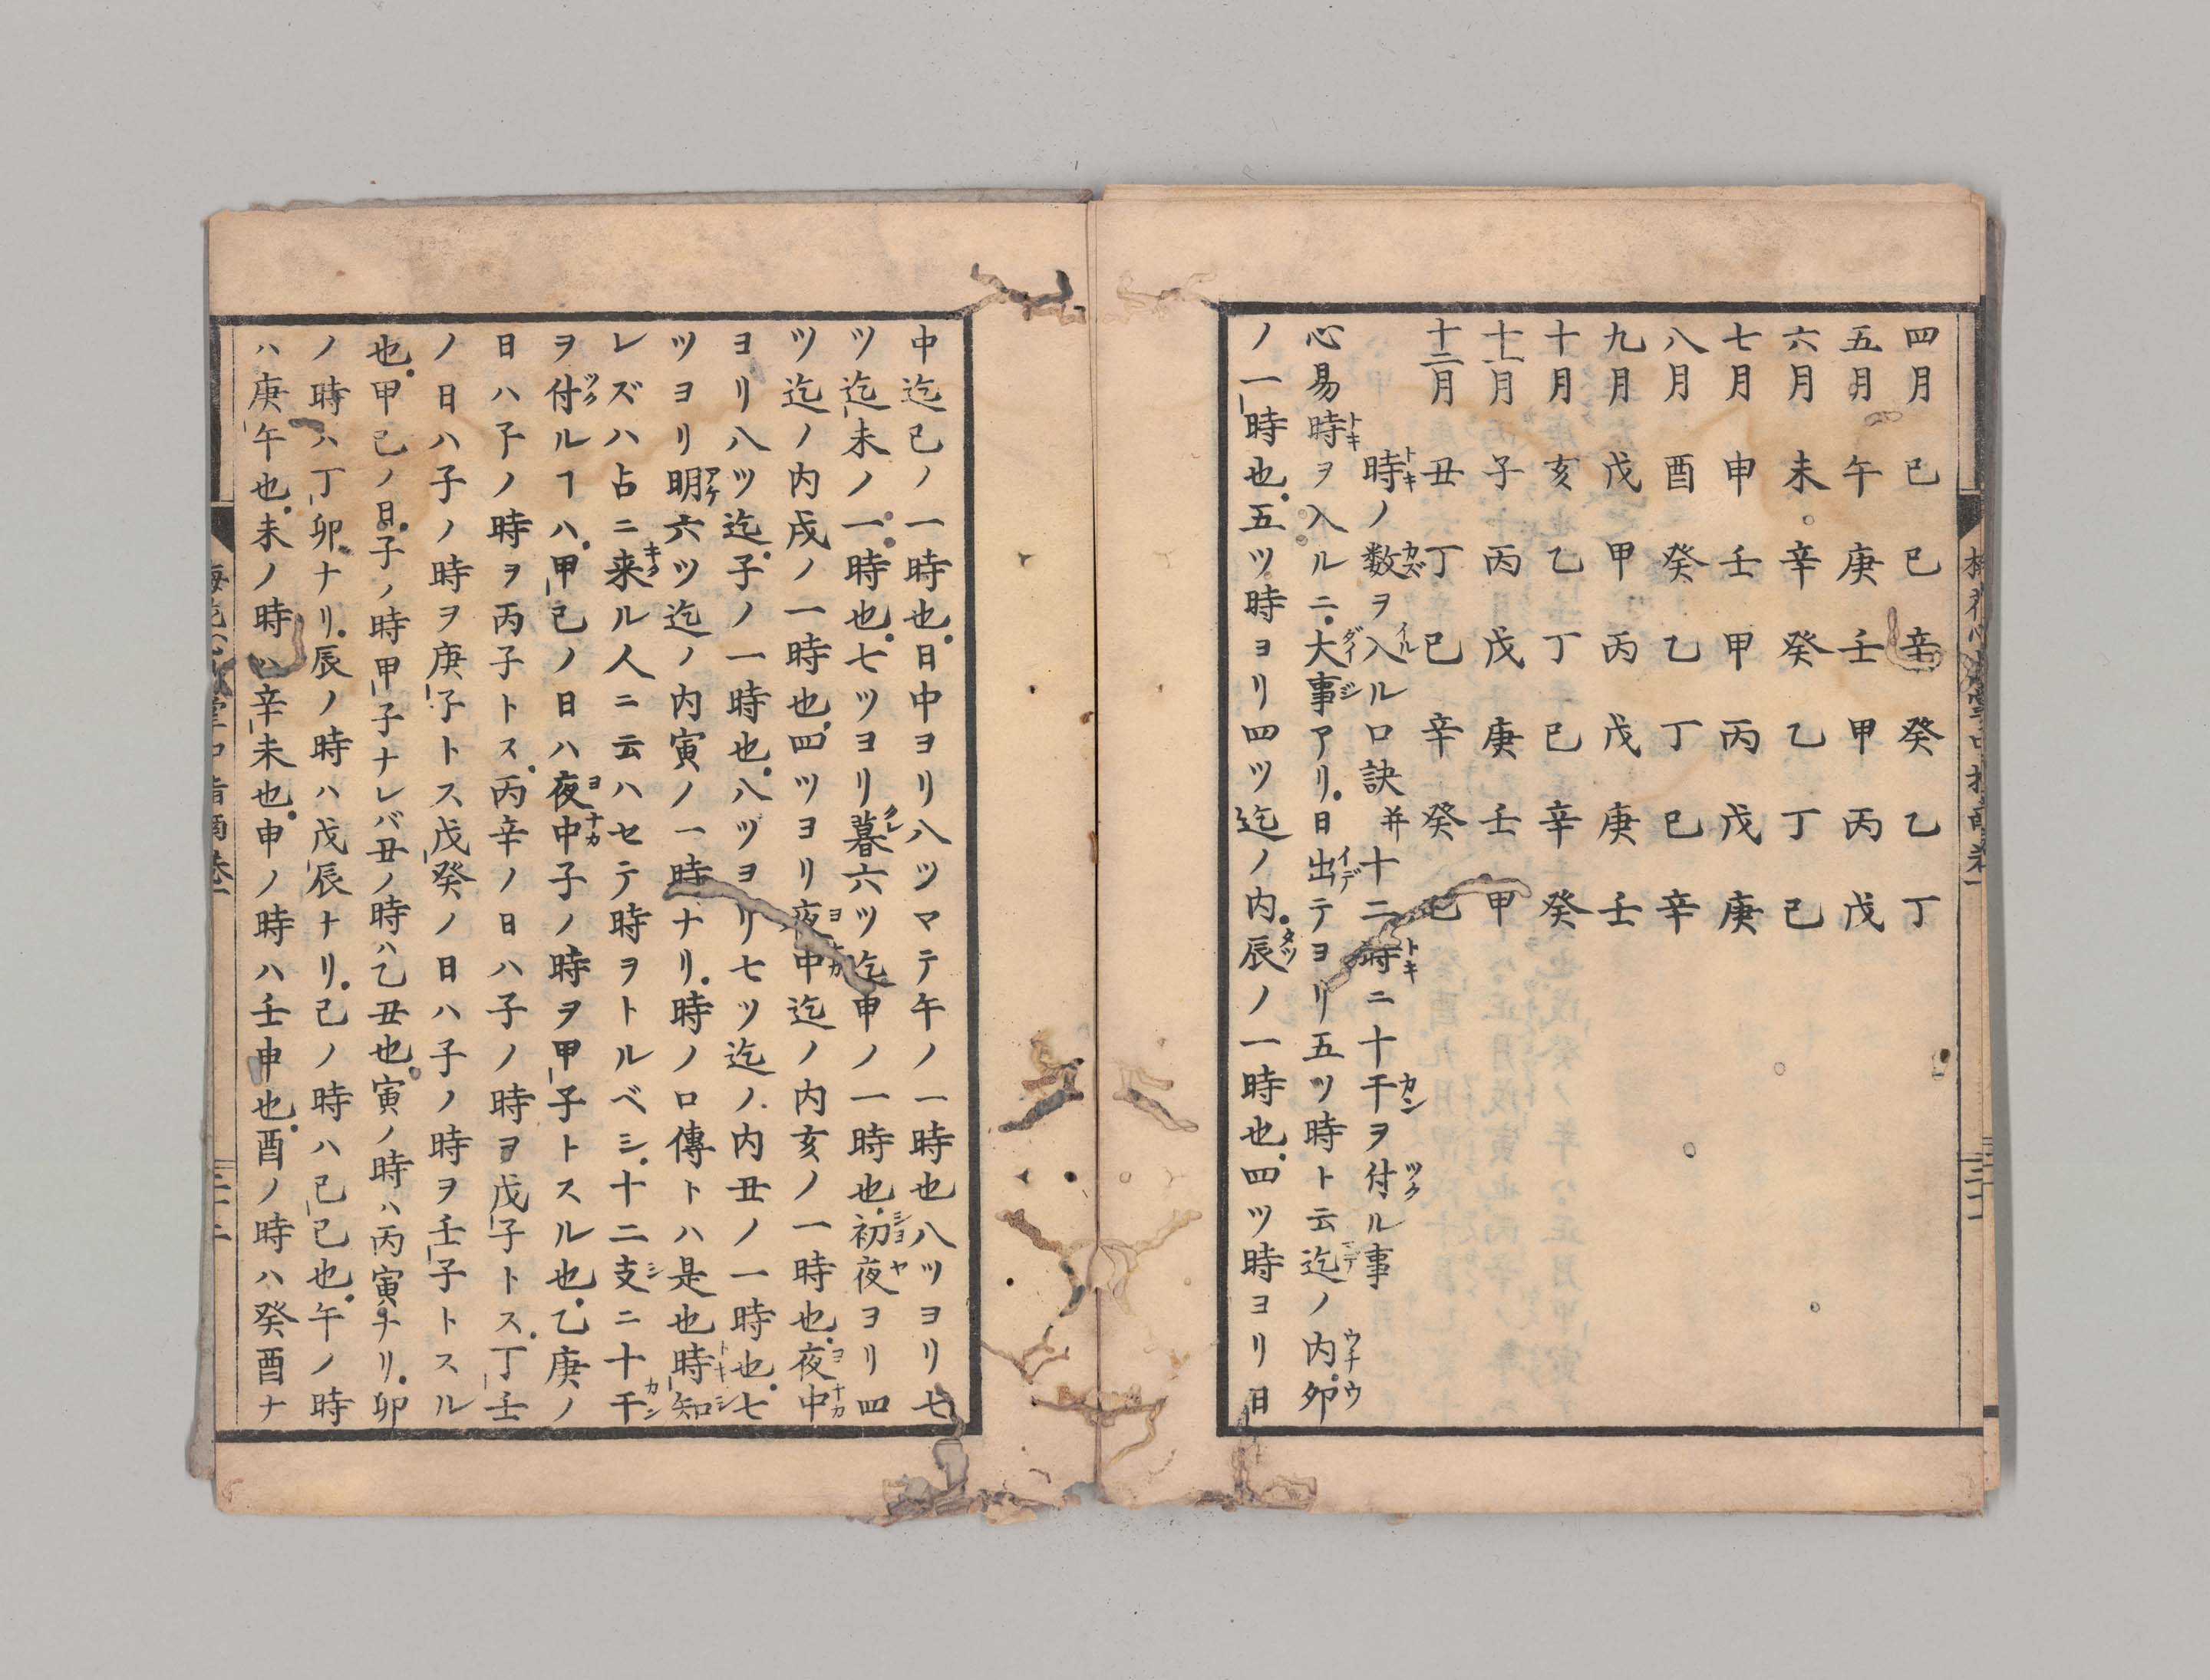 四月 巳 巳 辛 癸 乙 丁
五月 午 庚 壬 甲 丙 戊
六月 未 辛 癸 乙 丁 己
七月 申 壬 甲 丙 戊 庚
八月 酉 癸 乙 丁 己 辛
九月 戌 甲 丙 戊 庚 壬
十月 亥 乙 丁 己 辛 癸
十一月 子 丙 戊 庚 壬 甲
十二月 丑 丁 己 辛 癸 乙
時ノ数ヲ入ル口訣并十二時ニ十干ヲ付ル事
心易時ヲ入ルニ大事アリ日出テヨリ五ツ時ト云迄ノ内卯
ノ一時也五ツ時ヨリ四ツ迄ノ内辰ノ一時也四ツ時ヨリ日
中迄巳ノ一時也日中ヨリ八ツマテ午ノ一時也八ツヨリ七
ツ迄未ノ一時也七ツヨリ暮六ツ迄申ノ一時也初夜ヨリ四
ツ迄ノ内戌ノ一時也四ツヨリ夜中迄ノ内亥ノ一時也夜中
ヨリ八ツ迄子ノ一時也八ツヨリ七ツ迄ノ内丑ノ一時也七
ツヨリ明六ツ迄ノ内寅ノ一時ナリ時ノ口傳トハ是也時知
レズハ占ニ来ル人ニ云ハセテ時ヲトルベシ十二支ニ十干
ヲ付ルヿハ甲己ノ日ハ夜中子ノ時ヲ甲子トスル也乙庚ノ
日ハ子ノ時ヲ丙子トス丙辛ノ日ハ子ノ時ヲ戊子トス丁壬
ノ日ハ子ノ時ヲ庚子トス戊癸ノ日ハ子ノ時ヲ壬子トスル
也甲己ノ日子ノ時甲子ナレバ丑ノ時ハ乙丑也寅ノ時ハ丙寅ナリ卯
ノ時ハ丁卯ナリ辰ノ時ハ戊辰ナリ巳ノ時ハ己巳也午ノ時
ハ庚午也未ノ時ハ辛未也申ノ時ハ壬申也酉ノ時ハ癸酉ナ